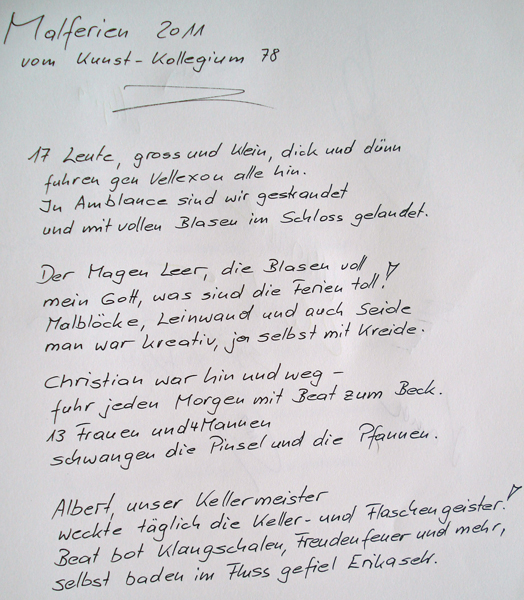 Malferien 2011
vom Kunst-Kollegium 78
17 Leute, gross und klein, dick und dünn
fuhren gen Vellexon alle hin.
In Amblance sind wir gestrandet
und mit vollen Blasen im Schloss gelandet.
Der Magen Leer, die Blasen voll
mein Gott, was sind die Ferien toll!
Malblöcke, Leinwand und auch Seide
man war kreativ, ja selbst mit Kreide.
Christian war hin und weg –
fuhr jeden Morgen mit Beat zum Beck.
13 Frauen und 4 Mannen
schwangen die Pinsel und die Pfannen.
Albert, unser Kellermeister
weckte täglich die Keller- und Flaschengeister!
Beat bot Klangschalen, Freudenfeuer und mehr,
selbst baden im Fluss gefiel Erika sehr.